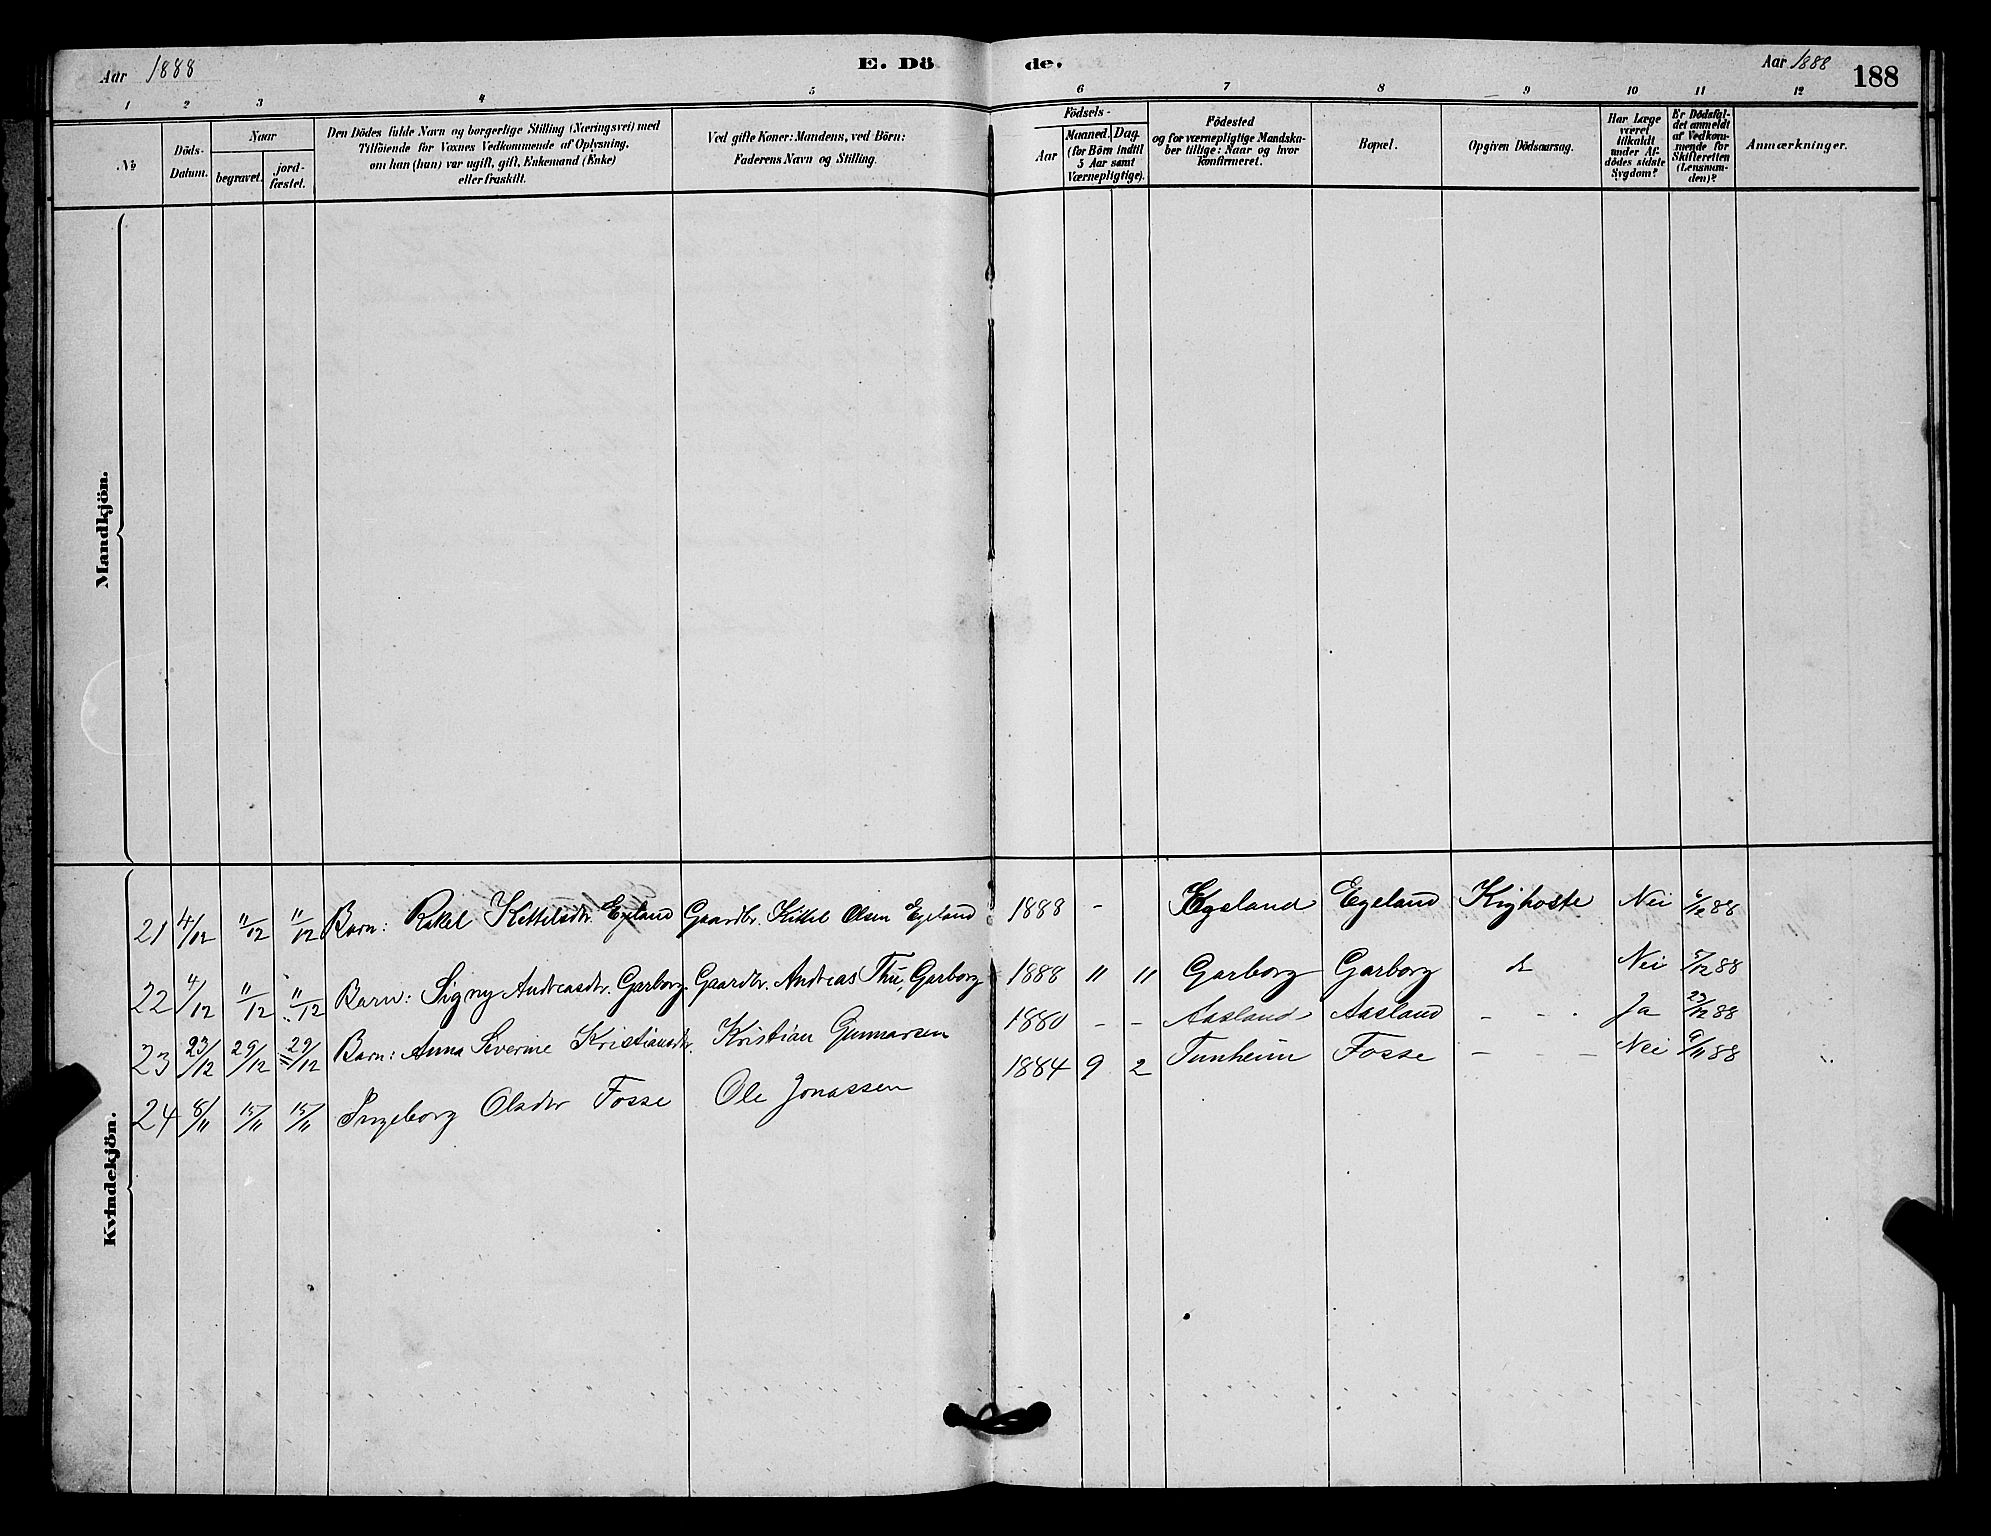 Aar 1888
E. Dö
de.
Aar 1888
188
1 2 3 4 5 6 7 8 9 10 11 12
No
Döds-Datum.
Naar
begravet.
jord-fæstet.
Den Dödes fulde Navn og borgerlige Stilling (Næringsvei) med
Tilföiende for Voxnes Vedkommende af Oplysning,
om han (hun) var ugift, gift, Enkemand (Enke)
eller fraskilt.
Ved gifte Koner: Mandens, ved Börn:
Faderens Navn og Stilling.
Födsels-
Aar
Maaned. Dag.
(for Börn indtil
5 Aar samt
Værnepligtige).
Födested
og for værnepligtige Mandska-
ber tillige: Naar og hvor
konfirmeret.
Bopæl.
Opgiven Dödsaarsag.
Har Læge
været
tilkaldt
under Af-
dödes sidste
Sygdom?
Er Dödsfal-
det anmeldt
af Vedkom-
mende for
Skifteretten
(Lensman-
den)?
Anmærkninger.
Mandkjön.
Kvindekjön.
21 4/12 11/12 11/12 Barn: Rakel Kittelsdtr. Egeland Gaardbr. Kittel Olsen Egeland 1888 - Egeland Egeland Kighoste Nei 6/12 88
22 4/12 11/12 11/12 Barn: Signy Andreasdtr. Garborg. Gaardbr. Andreas Thu, Garborg 1888 " " Garborg Garborg Nei 5/12 88
23 23/12 29/12 29/12 Barn: Anna Severine Kristiansdtr. Kristian Gunnarsen 1880 - - Aasland Aasland - - Ja 23/12 88
24 8/11 15/11 15/11 Ingeborg Olsdtr Fosse Ole Jonassen 1884 9 2 Tunheim Fosse - - - Nei 9/11 88